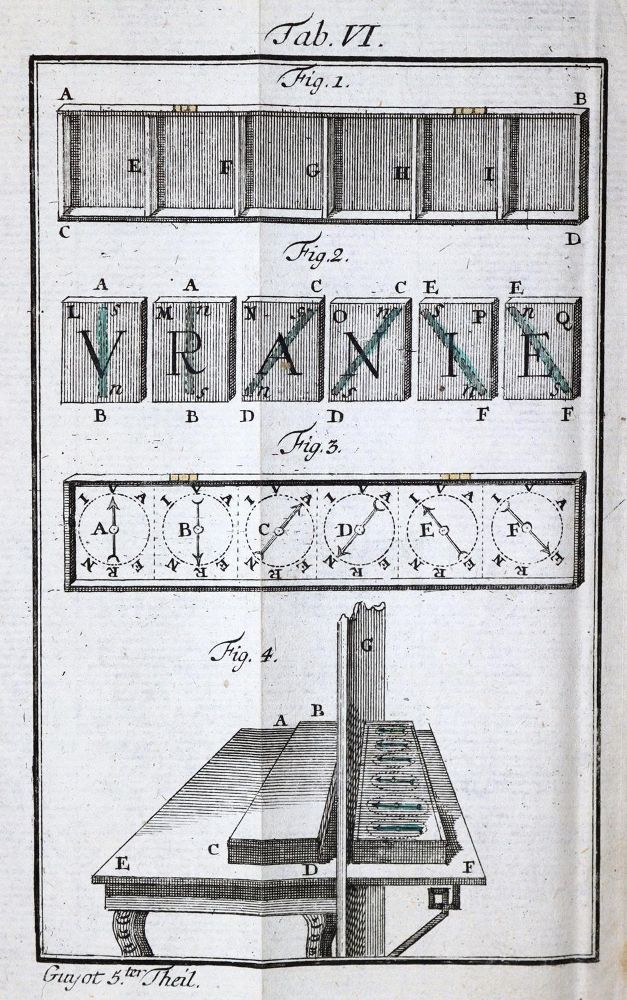 Tab. VI.
Fig. 1.
A B
E F G H I
C D
Fig. 2.
A A C C E E
L s M n N s O n s P n Q
V R A N I E
n s n s n s
B B D D F F
Fig. 3.
I V A I V A I V A I V A I V A I V A
A B C D E F
N R E N R E N R E N R E N R E N R E
Fig. 4.
G
A B
C D
E F
Guyot 5.ter Theil.